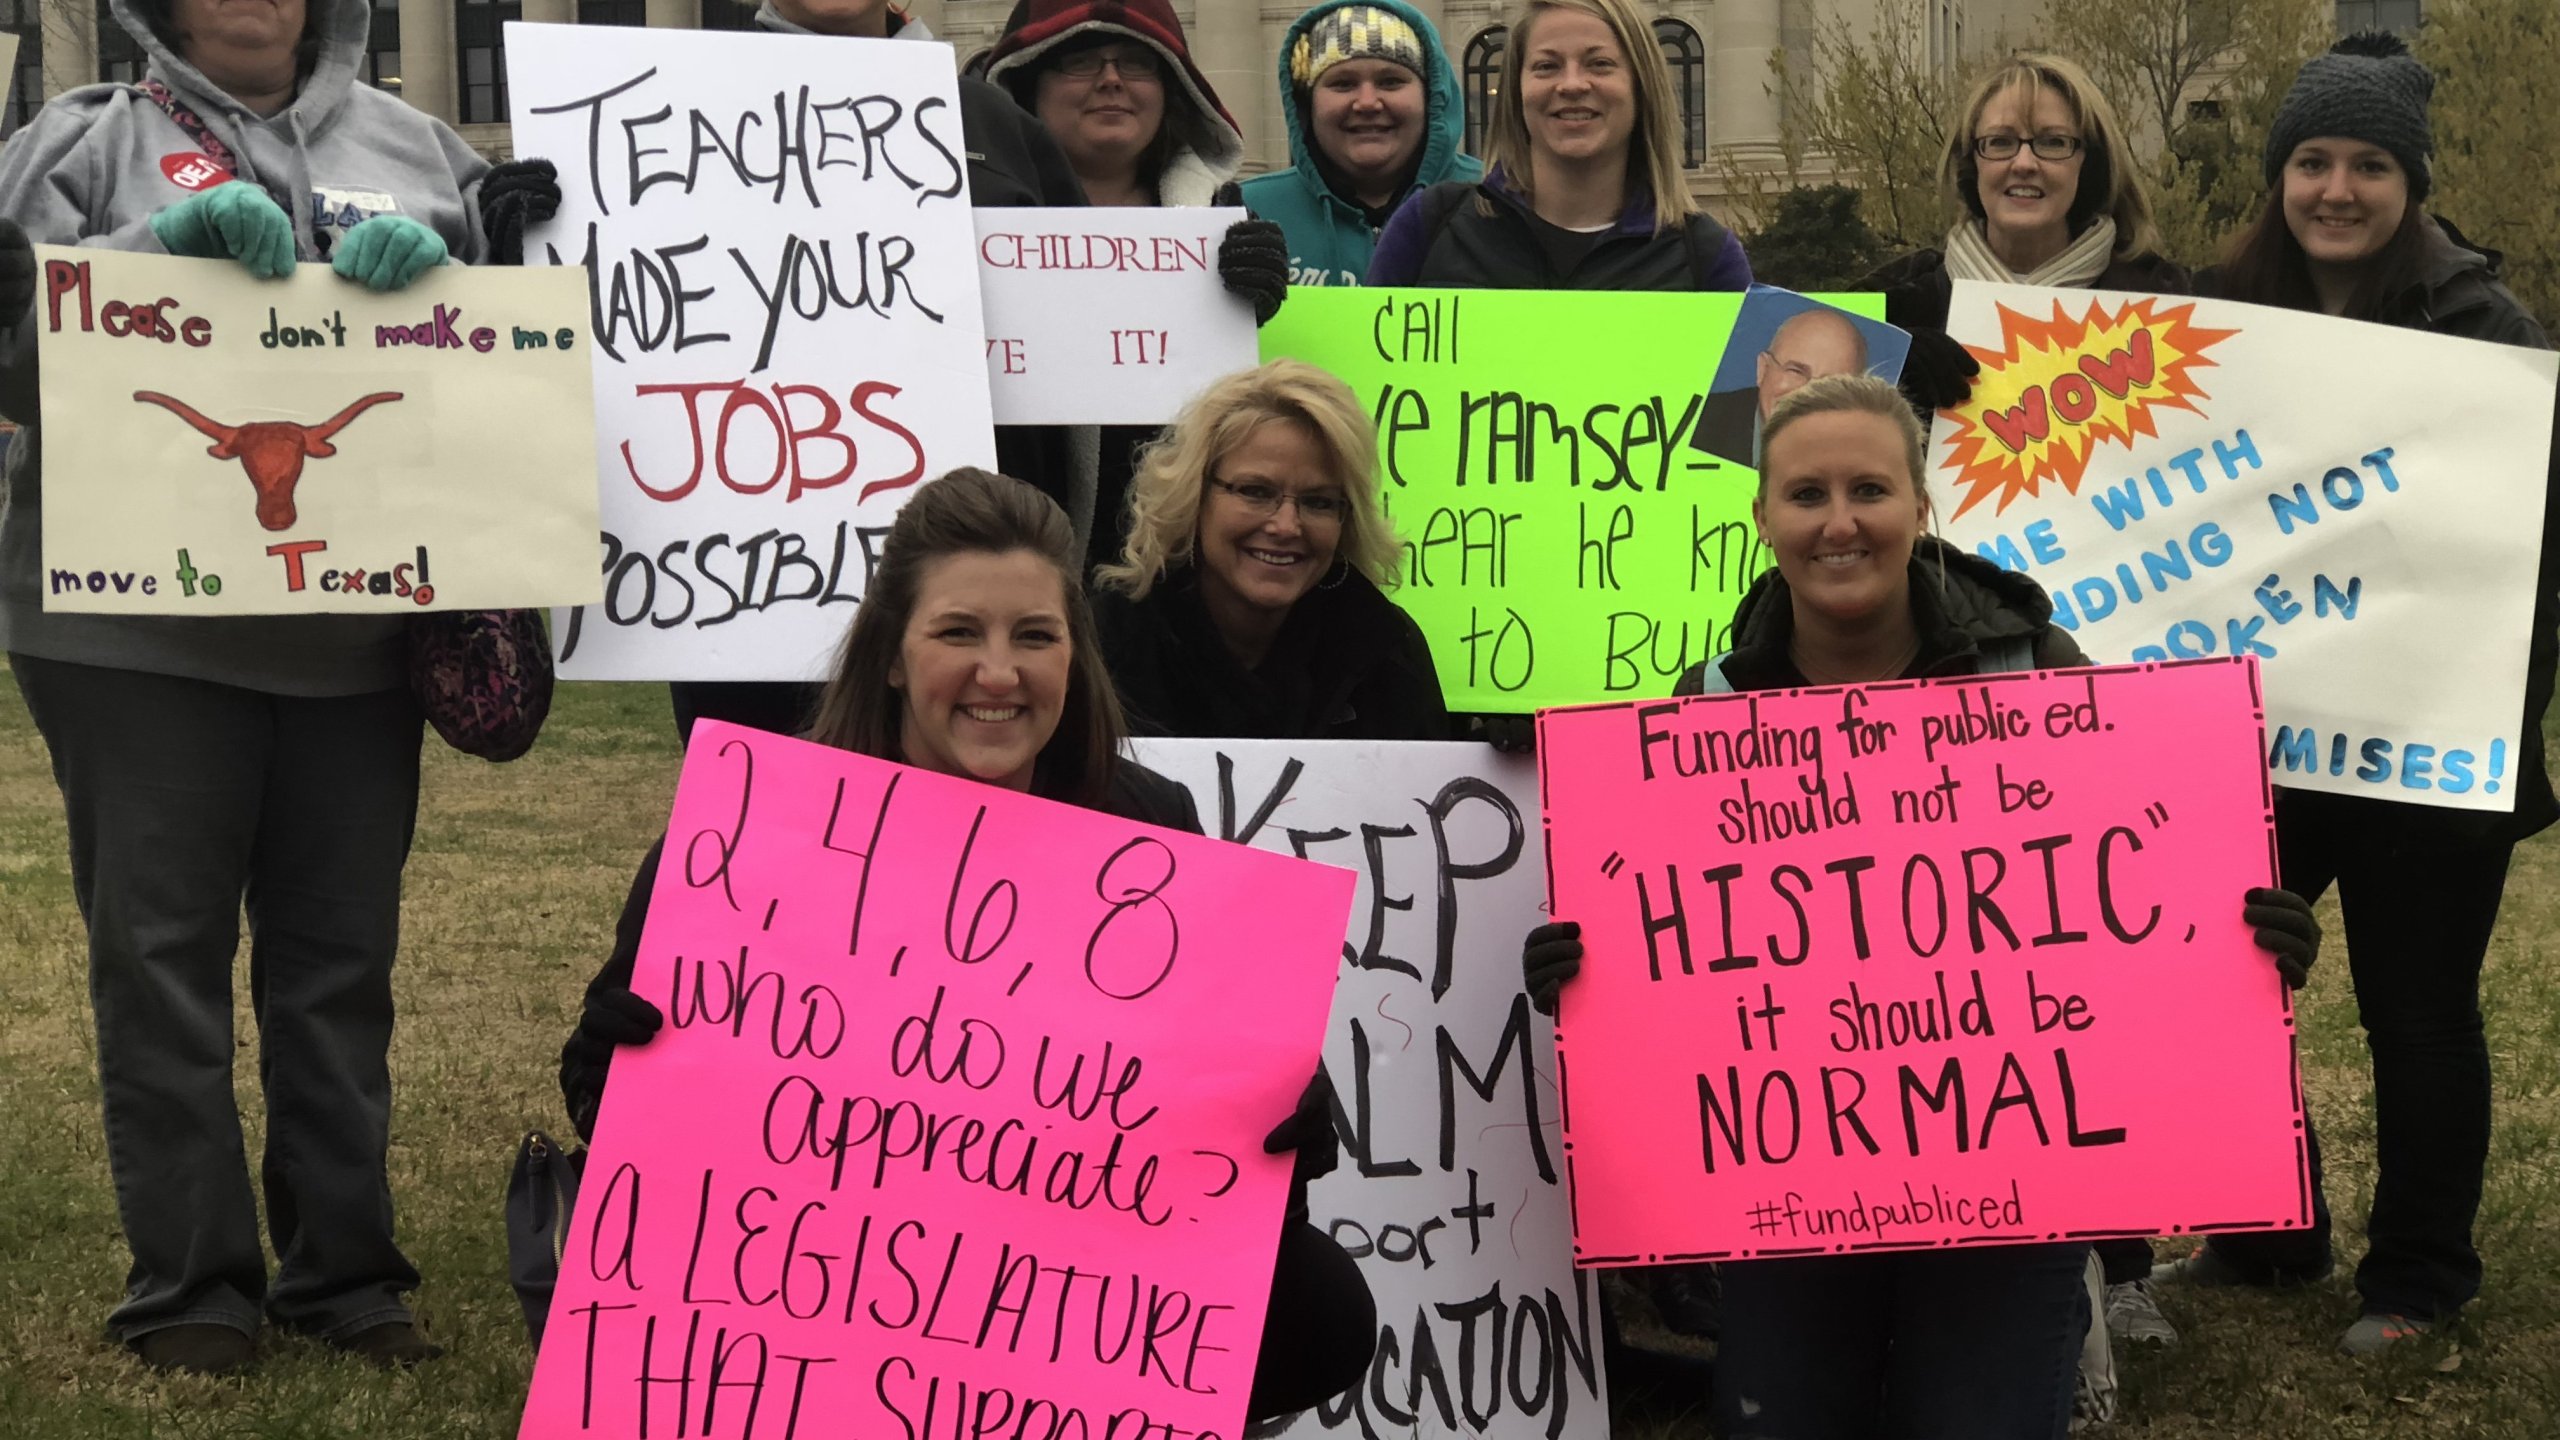 OEA
Please don't make me
move to Texas!
TEACHERS
MADE YOUR
JOBS
POSSIBLE
CHILDREN
IT!
CALL
RAMSEY-
HEAR HE
TO
WOW
ME WITH
NOT
2, 4, 6, 8
who do we
appreciate?
A LEGISLATURE
THAT SUPPORTS
KEEP
Funding for public ed.
should not be
"HISTORIC",
it should be
NORMAL
#fundpubliced